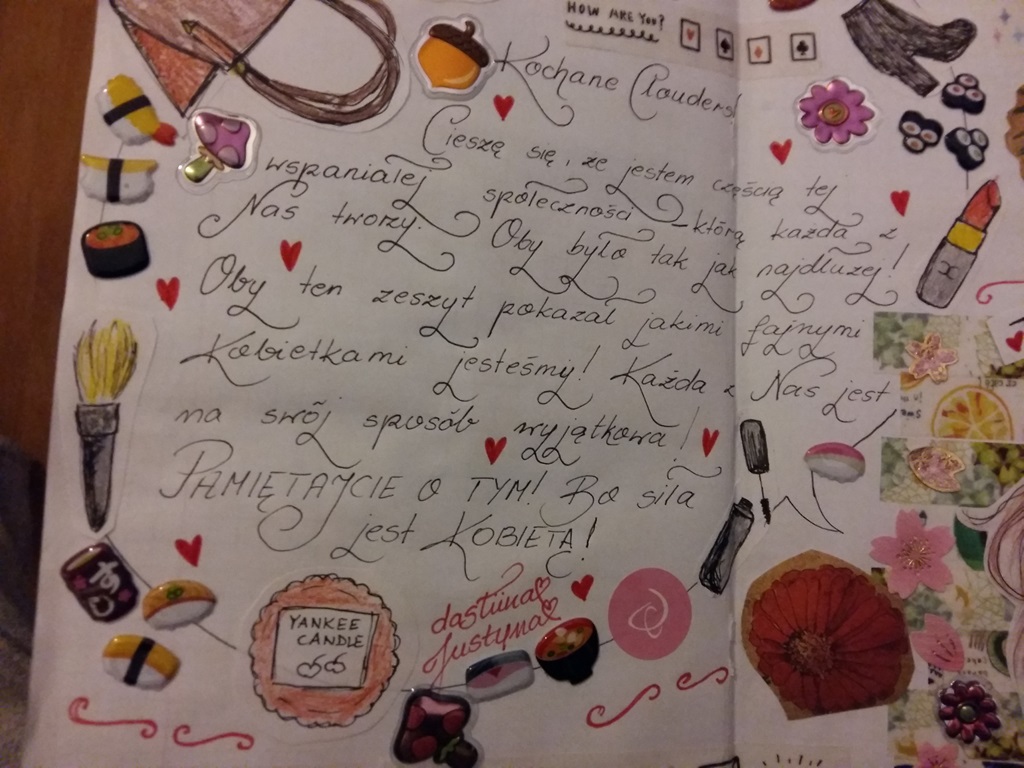 HOW ARE YOU?
Kochane Clouders!
Cieszę się, że jestem częścią tej
wspaniałej społeczności - którą każda z
Nas tworzy. Oby było tak jak najdłużej!
Oby ten zeszyt pokazał jakimi fajnymi
Kobietkami jesteśmy! Każda z Nas jest
na swój sposób wyjątkowa!
PAMIĘTAJCIE O TYM! Bo siła
jest KOBIETĄ!
YANKEE
CANDLE
dastiina
Justyna
す